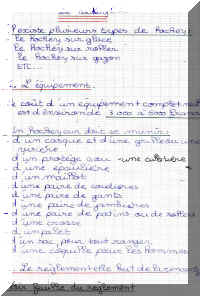 Il existe plusieurs types de hockey:
le hockey sur glace
le hockey sur roller
le hockey sur gazon
ETC...
L'équipement.
le coût d'un équipement complet neuf
est d'environ de 3 000 à 5000
En hockey on doit se munir:
d'un casque et d'une grille ou une
d'un protège cou -une culotière
d'une épaulière
d'un maillot
d'une paire de coudières
d'une paire de gants
d'une paire de jambières
d'une paire de patins ou de rollers
d'une crosse
d'un palet
d'un sac pour tout ranger
d'une coquille pour les hommes
Le règlement
Voir feuille du règlement